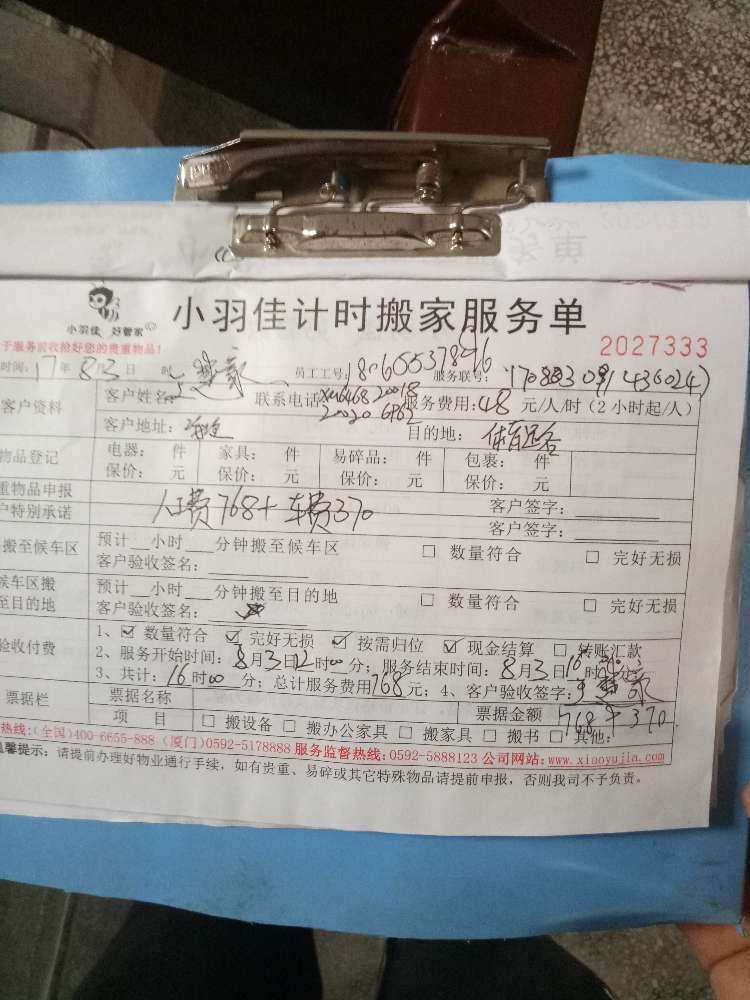 小羽佳 好管家
小羽佳计时搬家服务单
于服务前收拾好您的贵重物品!
2027333
时间: 17年 8月3日 时
员工工号:
服务联号:
18065537896
客户资料
客户姓名:
联系电话
服务费用:48 元/人/时(2小时起/人)
客户地址:
目的地: 体育
物品登记
电器: 件 家具: 件 易碎品: 件 包裹: 件
保价: 元 保价: 元 保价: 元 保价: 元
重物品申报
客户签字:
户特别承诺
人工费768+车费370
客户签字:
搬至候车区
预计 小时 分钟搬至候车区 □ 数量符合 □ 完好无损
客户验收签名:
候车区搬
至目的地
预计 小时 分钟搬至目的地 □ 数量符合 □ 完好无损
客户验收签名:
验收付费
1、☑ 数量符合 ☑ 完好无损 ☑ 按需归位 ☑ 现金结算 □ 转账汇款
2、服务开始时间: 8月3日12时00分; 服务结束时间: 8月3日16时00分;
3、共计: 16时00分; 总计服务费用768元; 4、客户验收签字:
票据栏
票据名称
票据金额
768+370
项 目 □ 搬设备 □ 搬办公家具 □ 搬家具 □ 搬书 □ 其他:
热线:(全国)400-6655-888 (厦门)0592-5178888 服务监督热线:0592-5888123 公司网站:www.xiaoyujia.com
温馨提示: 请提前办理好物业通行手续, 如有贵重、易碎或其它特殊物品请提前申报, 否则我司不予负责。